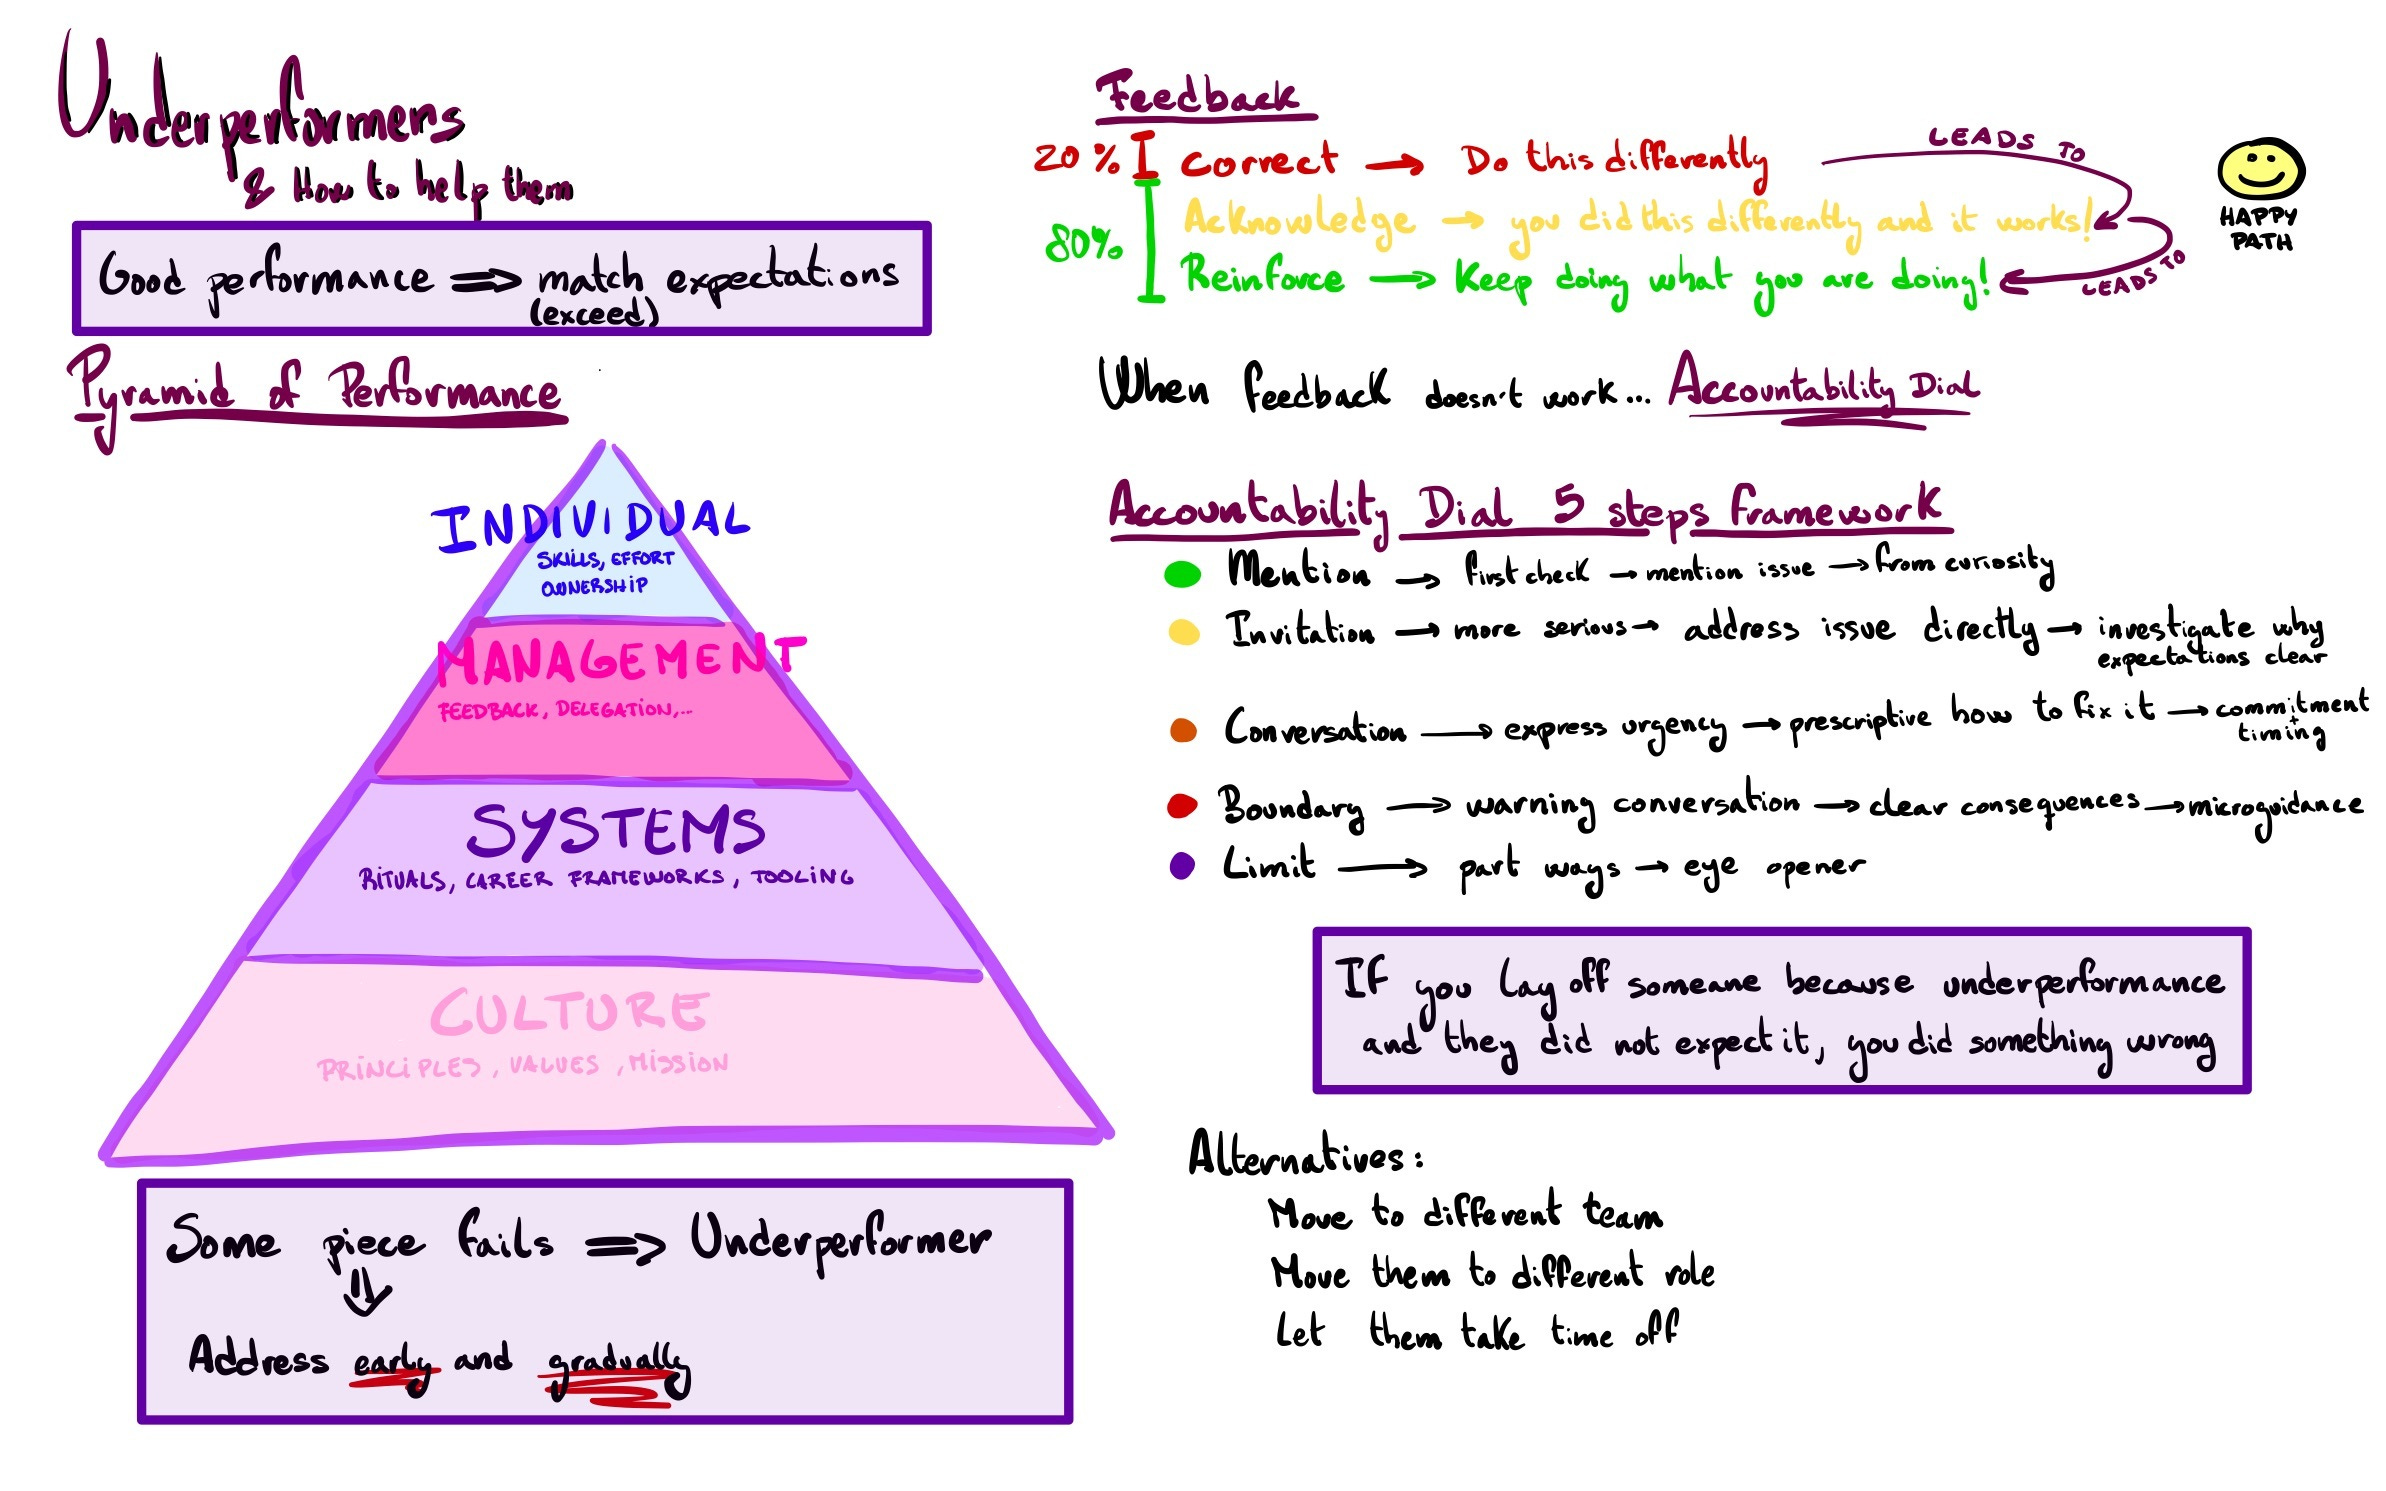 Underperformers
& How to help them
Good performance ⇒ match expectations
(exceed)
Pyramid of Performance
INDIVIDUAL
SKILLS, EFFORT
OWNERSHIP
MANAGEMENT
FEEDBACK, DELEGATION,...
SYSTEMS
RITUALS, CAREER FRAMEWORKS, TOOLING
CULTURE
PRINCIPLES, VALUES, MISSION
Some piece fails ⇒ Underperformer
⇓
Address early and gradually
Feedback
20% Correct → Do this differently
LEADS TO
80%
Acknowledge → you did this differently and it works!
Reinforce → Keep doing what you are doing!
LEADS TO
HAPPY
PATH
When feedback doesn't work... Accountability Dial
Accountability Dial 5 steps framework
Mention → first check → mention issue → from curiosity
Invitation → more serious → address issue directly → investigate why
expectations clear
Conversation → express urgency → prescriptive how to fix it → commitment
+
timing
Boundary → warning conversation → clear consequences → microguidance
Limit → part ways → eye opener
If you lay off someone because underperformance
and they did not expect it, you did something wrong
Alternatives:
Move to different team
Move them to different role
Let them take time off